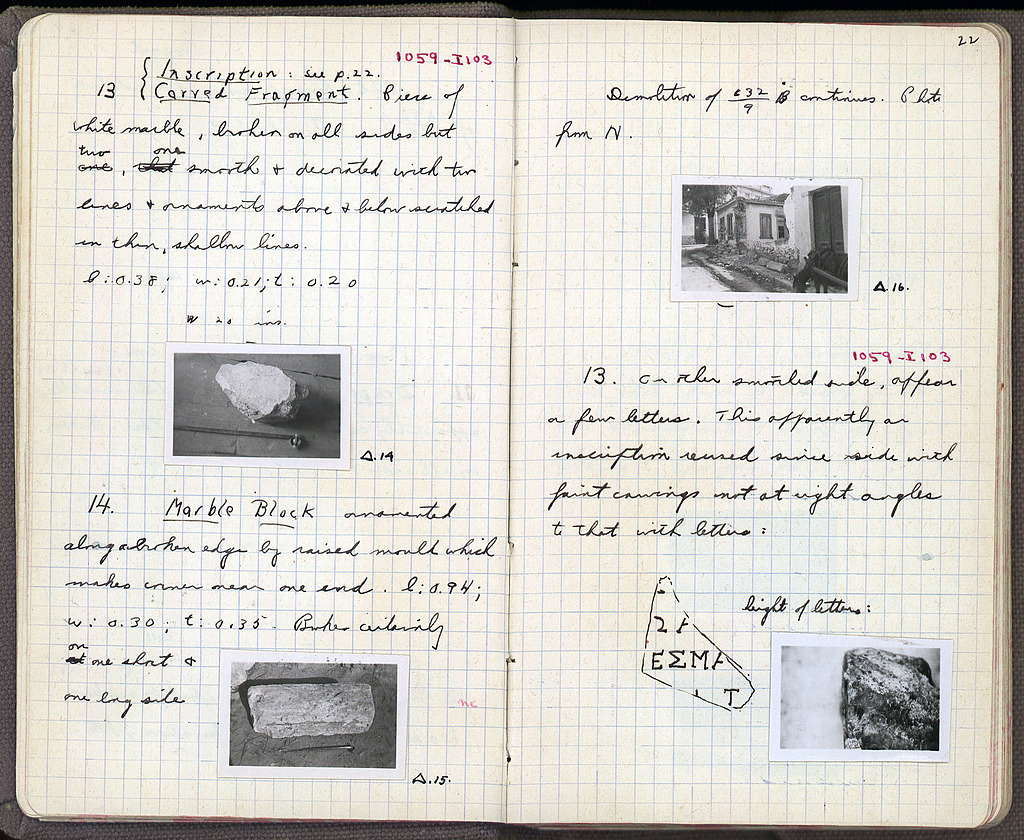 1059-I103
{ Inscription: see p.22.
13 { Carved Fragment. Piece of
white marble, broken on all sides but
two one
one, that smooth & decorated with two
lines & ornaments above & below scratched
in thin, shallow lines.
l: 0.38; w: 0.21; t: 0.20
W 20 ins.
Δ.14
14. Marble Block ornamented
along a broken edge by raised mould which
makes corner near one end. l: 0.94;
w: 0.30; t: 0.35. Broken certainly
on
at one short &
one long side
nc
Δ.15.
22
Demolition of 632/9 B continues. Photo
from N.
Δ.16.
1059-I103
13. On other smoothed side, appear
a few letters. This apparently an
inscription reused since side with
faint carvings not at right angles
to that with letters:
height of letters:
ΕΣΜΑ
Τ